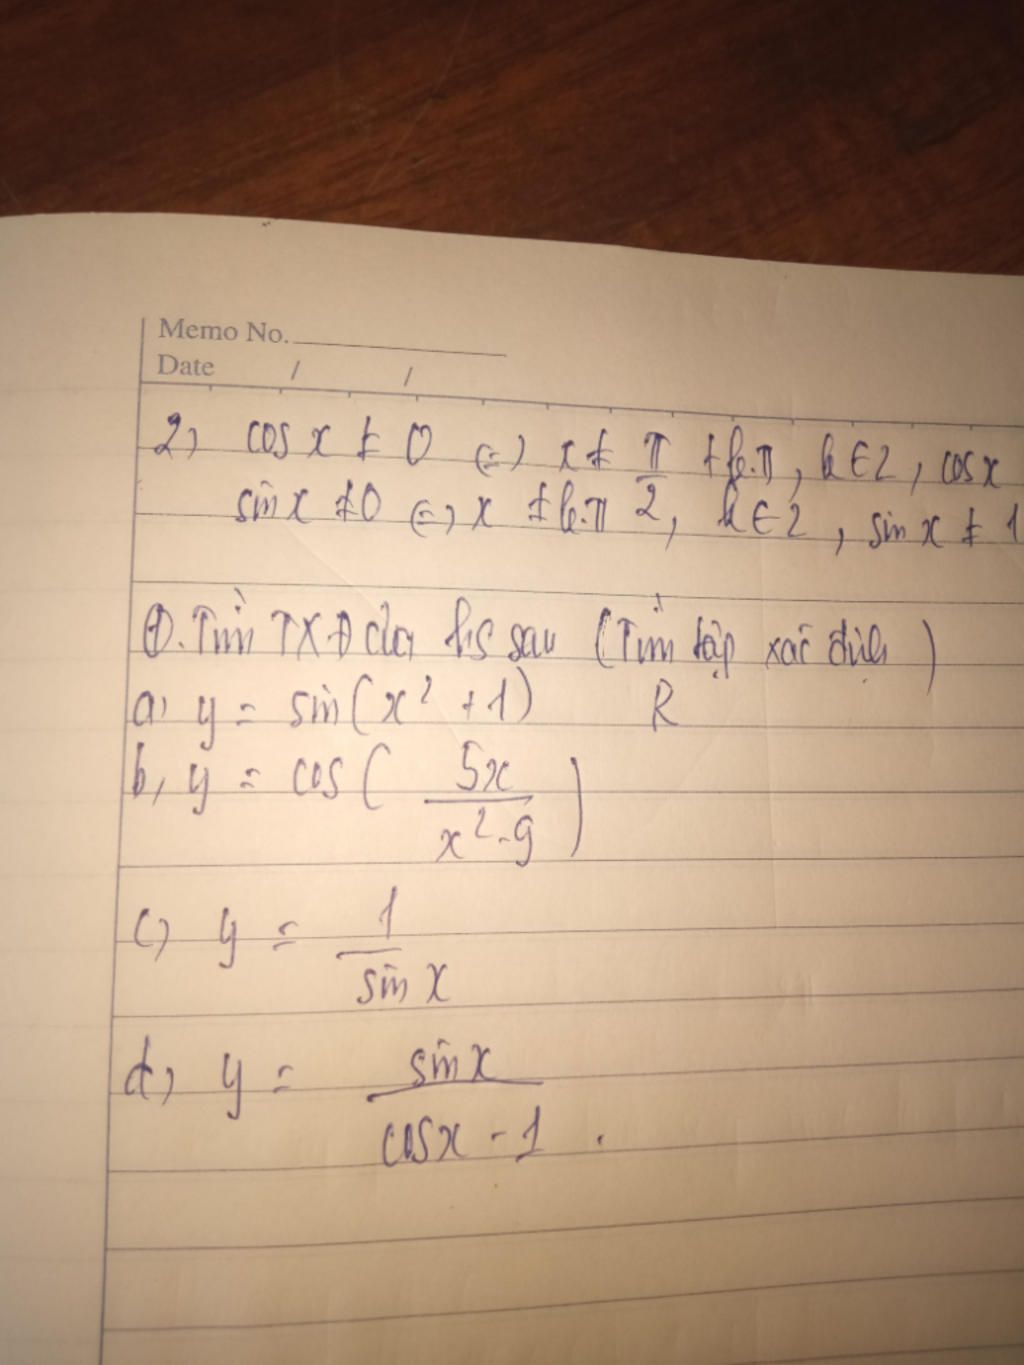 Memo No.
Date / /
2) cos x ≠ 0 ⇔ x ≠ π/2 + k.π, k ∈ Z, cos x
sin x ≠ 0 ⇔ x ≠ k.π, k ∈ Z, sin x ≠ 1
①. Tìm TXĐ của hs sau (Tìm tập xác định)
a) y = sin(x² + 1) R
b, y = cos( 5x / x² - 9 )
c) y = 1 / sin x
d) y = sin x / cos x - 1 .